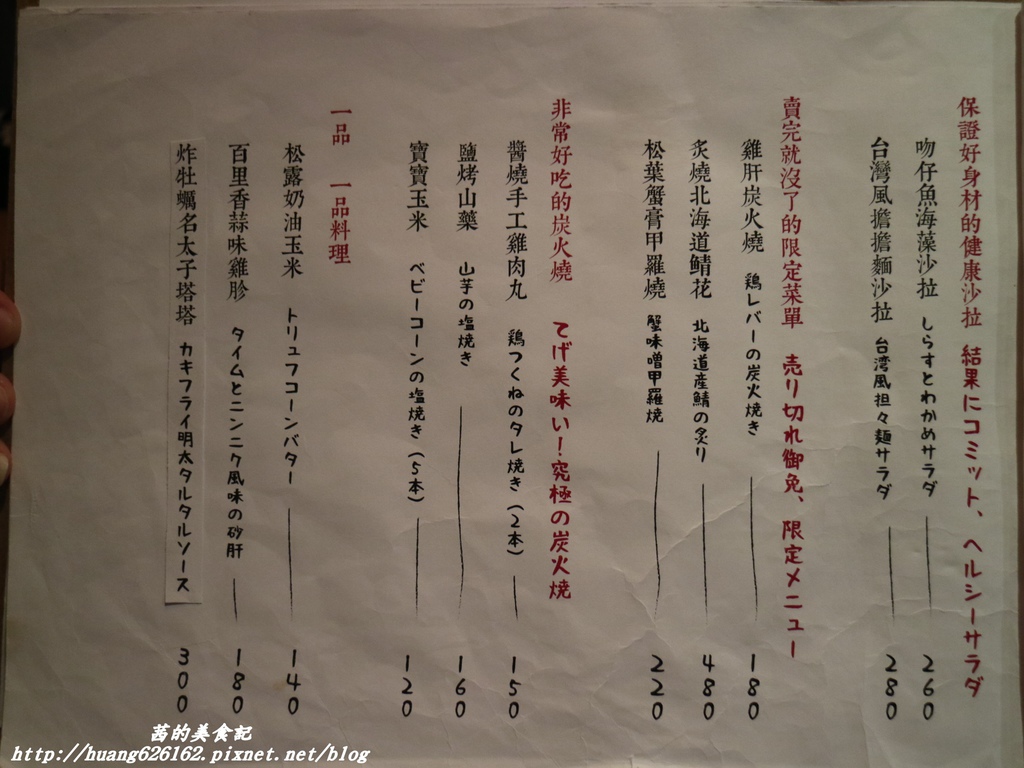 保證好身材的健康沙拉 結果にコミット、ヘルシーサラダ
吻仔魚海藻沙拉 しらすとわかめサラダ 260
台灣風擔擔麵沙拉 台湾風担々麺サラダ 280
賣完就沒了的限定菜單 売り切れ御免、限定メニュー
雞肝炭火燒 鶏レバーの炭火焼き 180
炙燒北海道鯖花 北海道産鯖の炙り 480
松葉蟹膏甲羅燒 蟹味噌甲羅焼 220
非常好吃的炭火燒 てげ美味い!究極の炭火焼
醬燒手工雞肉丸 鶏つくねのタレ焼き(2本) 150
鹽烤山藥 山芋の塩焼き 160
寶寶玉米 ベビーコーンの塩焼き(5本) 120
一品 一品料理
松露奶油玉米 トリュフコーンバター 140
百里香蒜味雞胗 タイムとニンニク風味の砂肝 180
炸牡蠣名太子塔塔 カキフライ明太タルタルソース 300
茜的美食記
http://huang626162.pixnet.net/blog